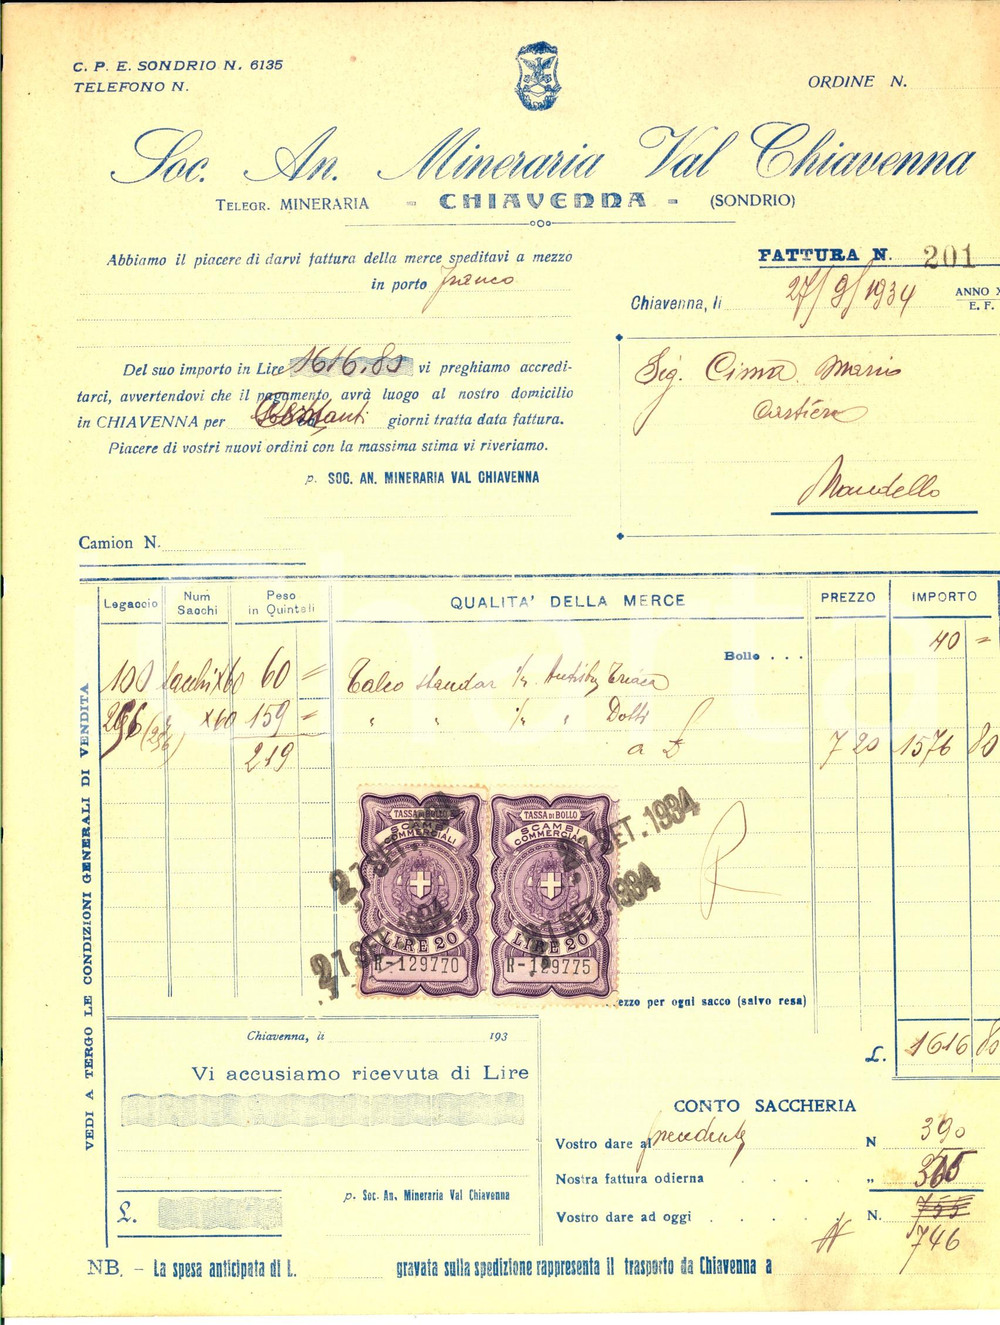 C. P. E. SONDRIO N. 6135
TELEFONO N.
ORDINE N.
Soc. An. Mineraria Val Chiavenna
TELEGR. MINERARIA - CHIAVENNA - (SONDRIO)
Abbiamo il piacere di darvi fattura della merce speditavi a mezzo
in porto franco
FATTURA N. 201
Chiavenna, li 27/9/1934
ANNO X
E. F.
Del suo importo in Lire 1616.80 vi preghiamo accredi-
tarci, avvertendovi che il pagamento avrà luogo al nostro domicilio
in CHIAVENNA per giorni tratta data fattura.
Piacere di vostri nuovi ordini con la massima stima vi riveriamo.
p. SOC. AN. MINERARIA VAL CHIAVENNA
Sig. Cima Mario
Cartiera
Mandello
Camion N.
Legaccio
Num Sacchi
Peso in Quintali
QUALITA' DELLA MERCE
PREZZO
IMPORTO
Bollo . . . 40 =
100 sacchi x 60 60 = Talco standar
x 60 159 = " "
219 a £ 7 20 1576 80
TASSA DI BOLLO
SCAMBI COMMERCIALI
LIRE 20
R-129770
TASSA DI BOLLO
SCAMBI COMMERCIALI
LIRE 20
R-129775
27 SET. 1934
27 SET. 1934
27 SET. 1934
27 SET. 1934
ezzo per ogni sacco (salvo resa)
£. 1616 80
VEDI A TERGO LE CONDIZIONI GENERALI DI VENDITA
Chiavenna, li 193
Vi accusiamo ricevuta di Lire
p. Soc. An. Mineraria Val Chiavenna
£.
CONTO SACCHERIA
Vostro dare al precedente N 390
Nostra fattura odierna . . . . "
Vostro dare ad oggi . . . . N. 755
746
NB. - La spesa anticipata di L. gravata sulla spedizione rappresenta il trasporto da Chiavenna a